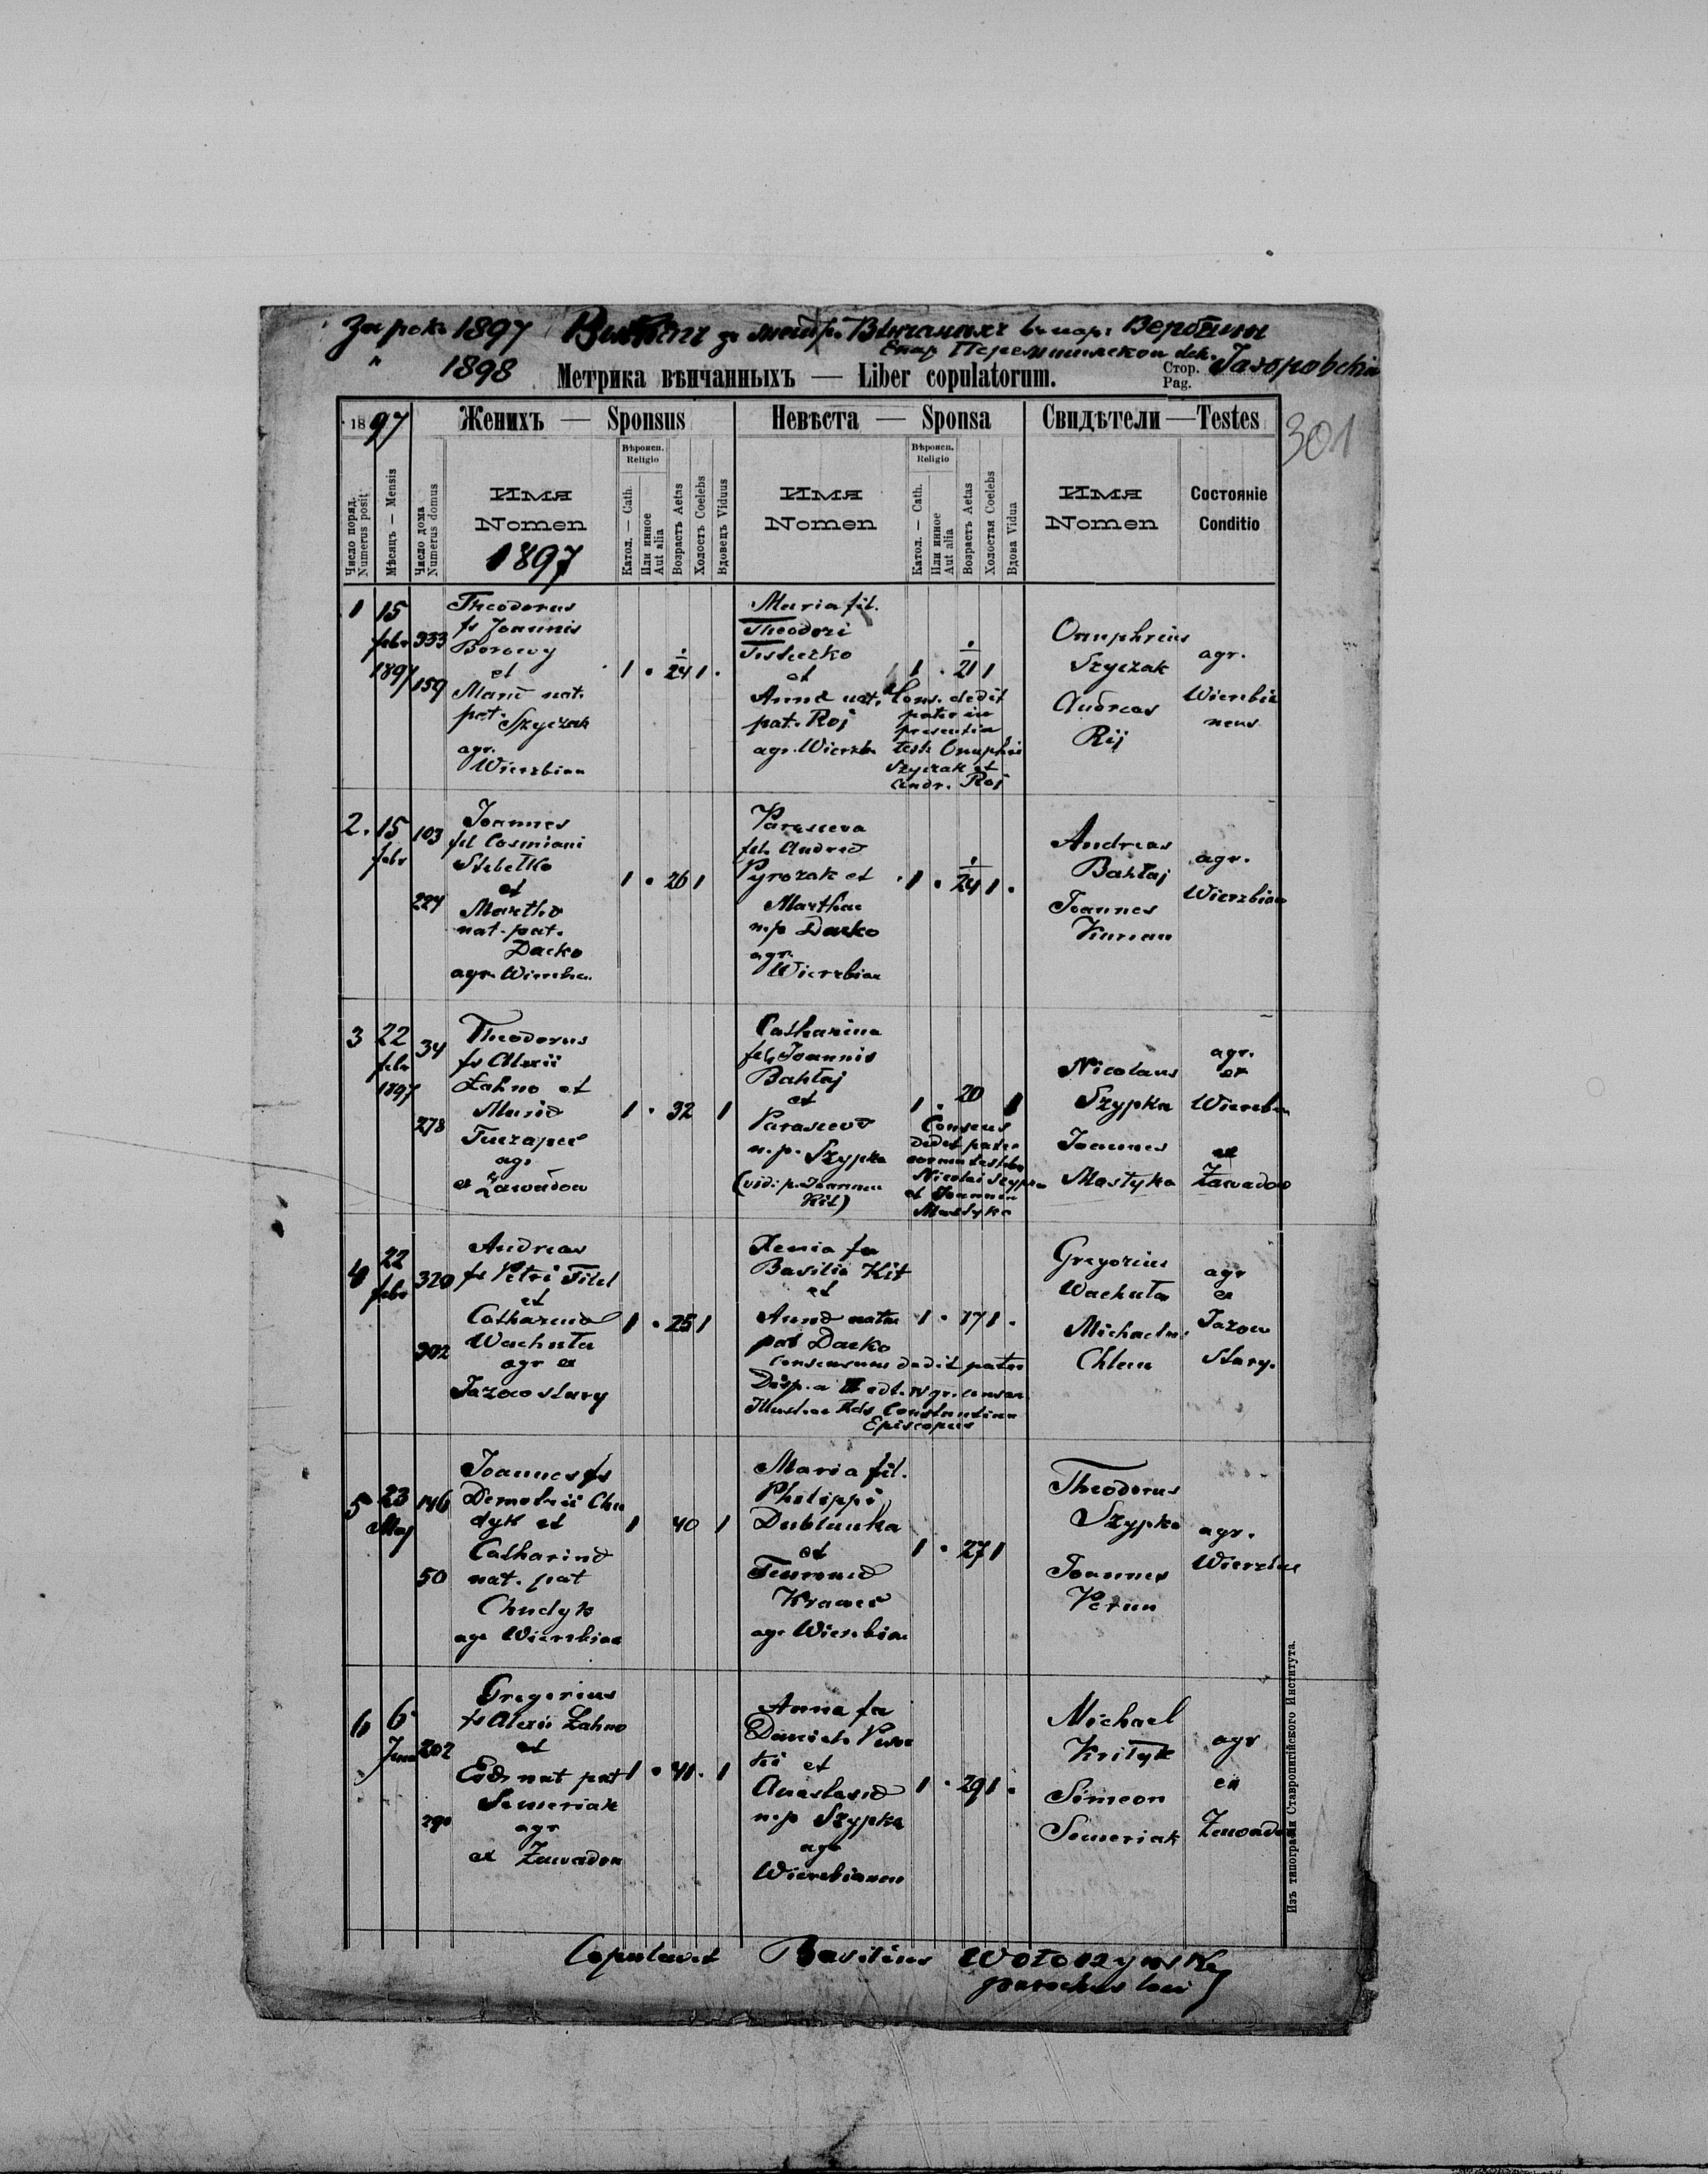 За рокъ 1897 Вытягъ зъ метр. Вѣнчаныхъ въ пар: Вербяни
" 1898 Епар Перемышлскои dek. Jaworowskim
Метрика вѣнчанныхъ — Liber copulatorum.
Стор.
Pag.
301
1897
Женихъ — Sponsus
Невѣста — Sponsa
Свидѣтели — Testes
Число поряд.
Numerus posit
Мѣсяць — Mensis
Число дома
Numerus domus
Имя
Nomen
1897
Вѣроисп.
Religio
Катол. — Cath.
Или инное
Aut alia
Возрастъ Aetas
Холостъ Coelebs
Вдовецъ Viduus
Имя
Nomen
Вѣроисп.
Religio
Катол. — Cath.
Или инное
Aut alia
Возрастъ Aetas
Холостая Coelebs
Вдова Vidua
Имя
Nomen
Состояніе
Conditio
1
15
febr
1897
333
159
Theodorus
fs Joannis
Borowy
et
Mariæ nat.
pat. Szyczak
agr.
Wierzbian
1 . 24 1 .
Maria fil.
Theodori
et
Annæ nat.
pat. Roj
agr. Wierzb
1 . 21 1
Cons. dedit
pater in
presentia
test. Onuphrii
Szyczak et
Andr. Roj
Onuphrius
Szyczak
Andreas
Rij
agr.
Wierzbia
nens
2.
15
febr
103
224
Joannes
fil Cosmiani
Stebelko
et
Marthæ
nat. pat.
Dacko
agr. Wierzbian
1 . 26 1
Parasceva
fil. Andreæ
Pyrozak et
Marthae
n.p Dacko
agr.
Wierzbian
1 . 24 1 .
Andreas
Bahlaj
Joannes
agr.
Wierzbian
3
22
febr
1897
34
278
Theodorus
fs Alexii
Łahno et
Mariæ
agr
ex Zawadow
1 . 32 1
Catharina
fil. Joannis
Bahłaj
et
Parascevæ
n.p. Szypka
(vid: p. Joannem
Kit)
1 . 20 1
Consens
dedit pater
coram testibus
Nicolai Szypka
et Joannem
Mastyka
Nicolaus
Szypka
Joannes
Mastyka
agr.
ex
Wierzbian
ex
Zawadow
4
22
febr
320
302
Andreas
fs Petri Filel
et
Catharinæ
Wachuta
agr ex
Jazow stary
1 . 25 1
Xenia fa
Basilii Kit
et
Annæ nata
pat Dacko
1 . 17 1 .
Consensum dedit pater
Episcopus
Gregorius
Wachuta
Michael
agr
ex
Jazow
Stary.
5
23
Maj
146
50
Joannes fs
Demetrii Chu
dyk et
Catharinæ
nat. pat
Chudyk
agr Wierzbian
1 40 1
Maria fil.
Philippi
et
agr Wierzbian
1 . 27 1
Theodorus
Szypka
Joannes
agr.
Wierzbian
6
6
Juni
202
290
Gregorius
fs Alexii Łahno
et
Evæ nat pat
Semeriak
agr
ex Zawadow
1 . 41 . 1
Anna fa
et
Anastasiæ
n.p Szypka
agr
Wierzbianen
1 . 29 1 .
Michael
Simeon
Semeriak
agr
ex
Zawadow
Copulavit Basilius Wołoszynski
parochus loci
Изъ типографіи Ставропигійского Института.